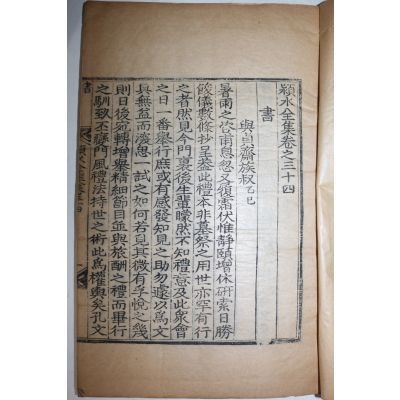 潁水全集卷之三十四
書
與 齋族叔乙巳
暑雨之 甫息忽又復霜伏惟靜頤增休研索日勝
餕儀數條抄呈矣此禮本非墓祭之用世亦罕有行
之者然見今門裏後生輩矇然不知禮意及此衆會
之日一番擧行庶或有感發知見之助勿遽以爲文
具無益而淺思一試之如何若見其微有孚悅之幾
則日後宛轉增擧精細節目並與旅酬之禮而畢行
之馴致丕變門風禮法持世之術此爲權輿矣孔文